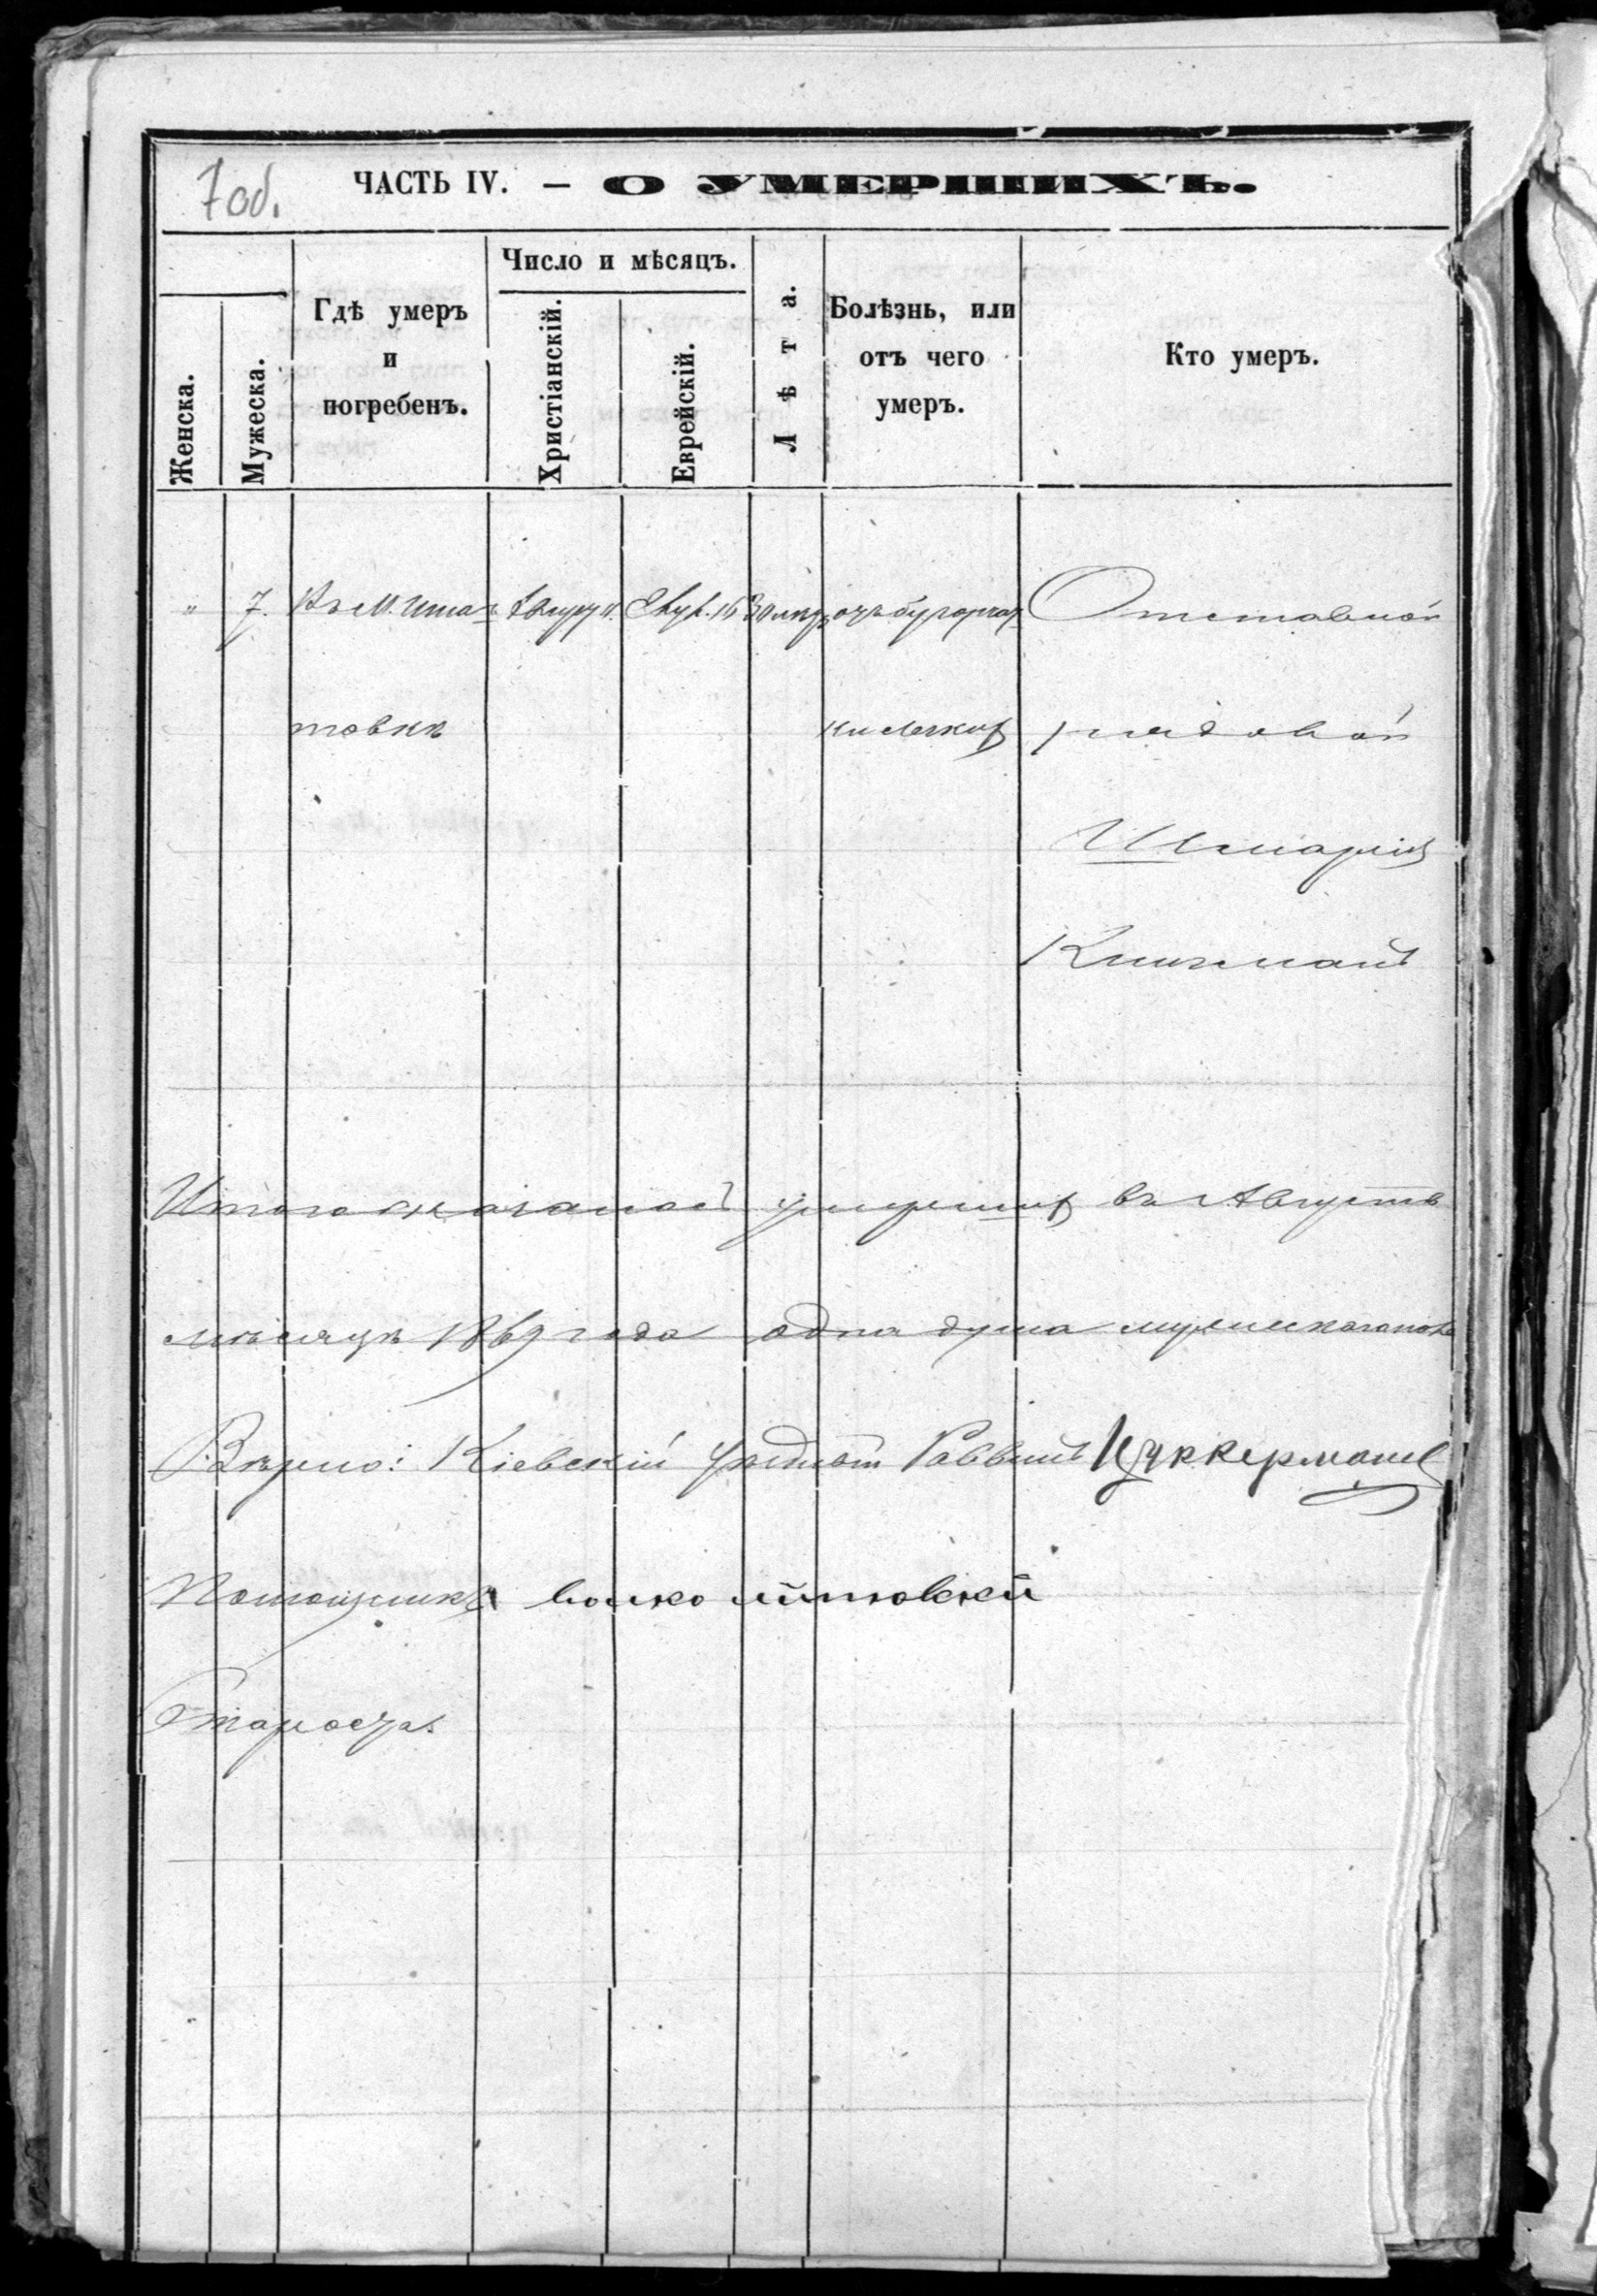 7 об.
ЧАСТЬ IV. — О УМЕРШИХЪ.
Женска.
Мужеска.
Гдѣ умеръ
и
погребенъ.
Число и мѣсяцъ.
Христіанскій.
Еврейскій.
Лѣта.
Болѣзнь, или
отъ чего
умеръ.
Кто умеръ.
" 7. Въ М. Игна- 16 30 отъ бугорча- Отставной
товкѣ рядовой
Шмарія
Итого оказалось умершихъ въ Августѣ
мѣсяцѣ 1869 года одна душа мужескаго пола
Вѣрно: Кіевскій уѣздный Раввинъ Цуккерманъ
Помощникъ
Староста